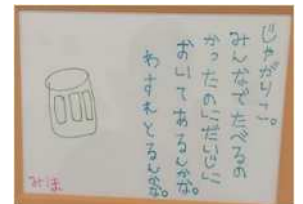 じゃがりこ。
みんなでたべるの
かったの「だいじに
おいてあるんかな。
わすれとるんかな。
みほ